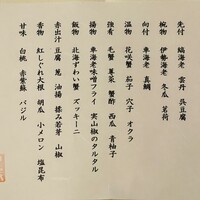 先付 縞海老 雲丹 呉豆腐
椀物 伊勢海老 冬瓜 茗荷
向付 車海老 真鯛
温物 花咲蟹 茄子 穴子 オクラ
強肴 毛蟹 蓴菜 蟹酢 西瓜 青柚子
揚物 車海老味噌フライ 実山椒のタルタル
飯物 北海ずわい蟹 ズッキーニ
赤出汁 豆腐 葱 油揚 揉み若芽 山椒
香物 紅しぐれ大根 胡瓜 小メロン 塩昆布
甘味 白桃 赤紫蘇 バジル